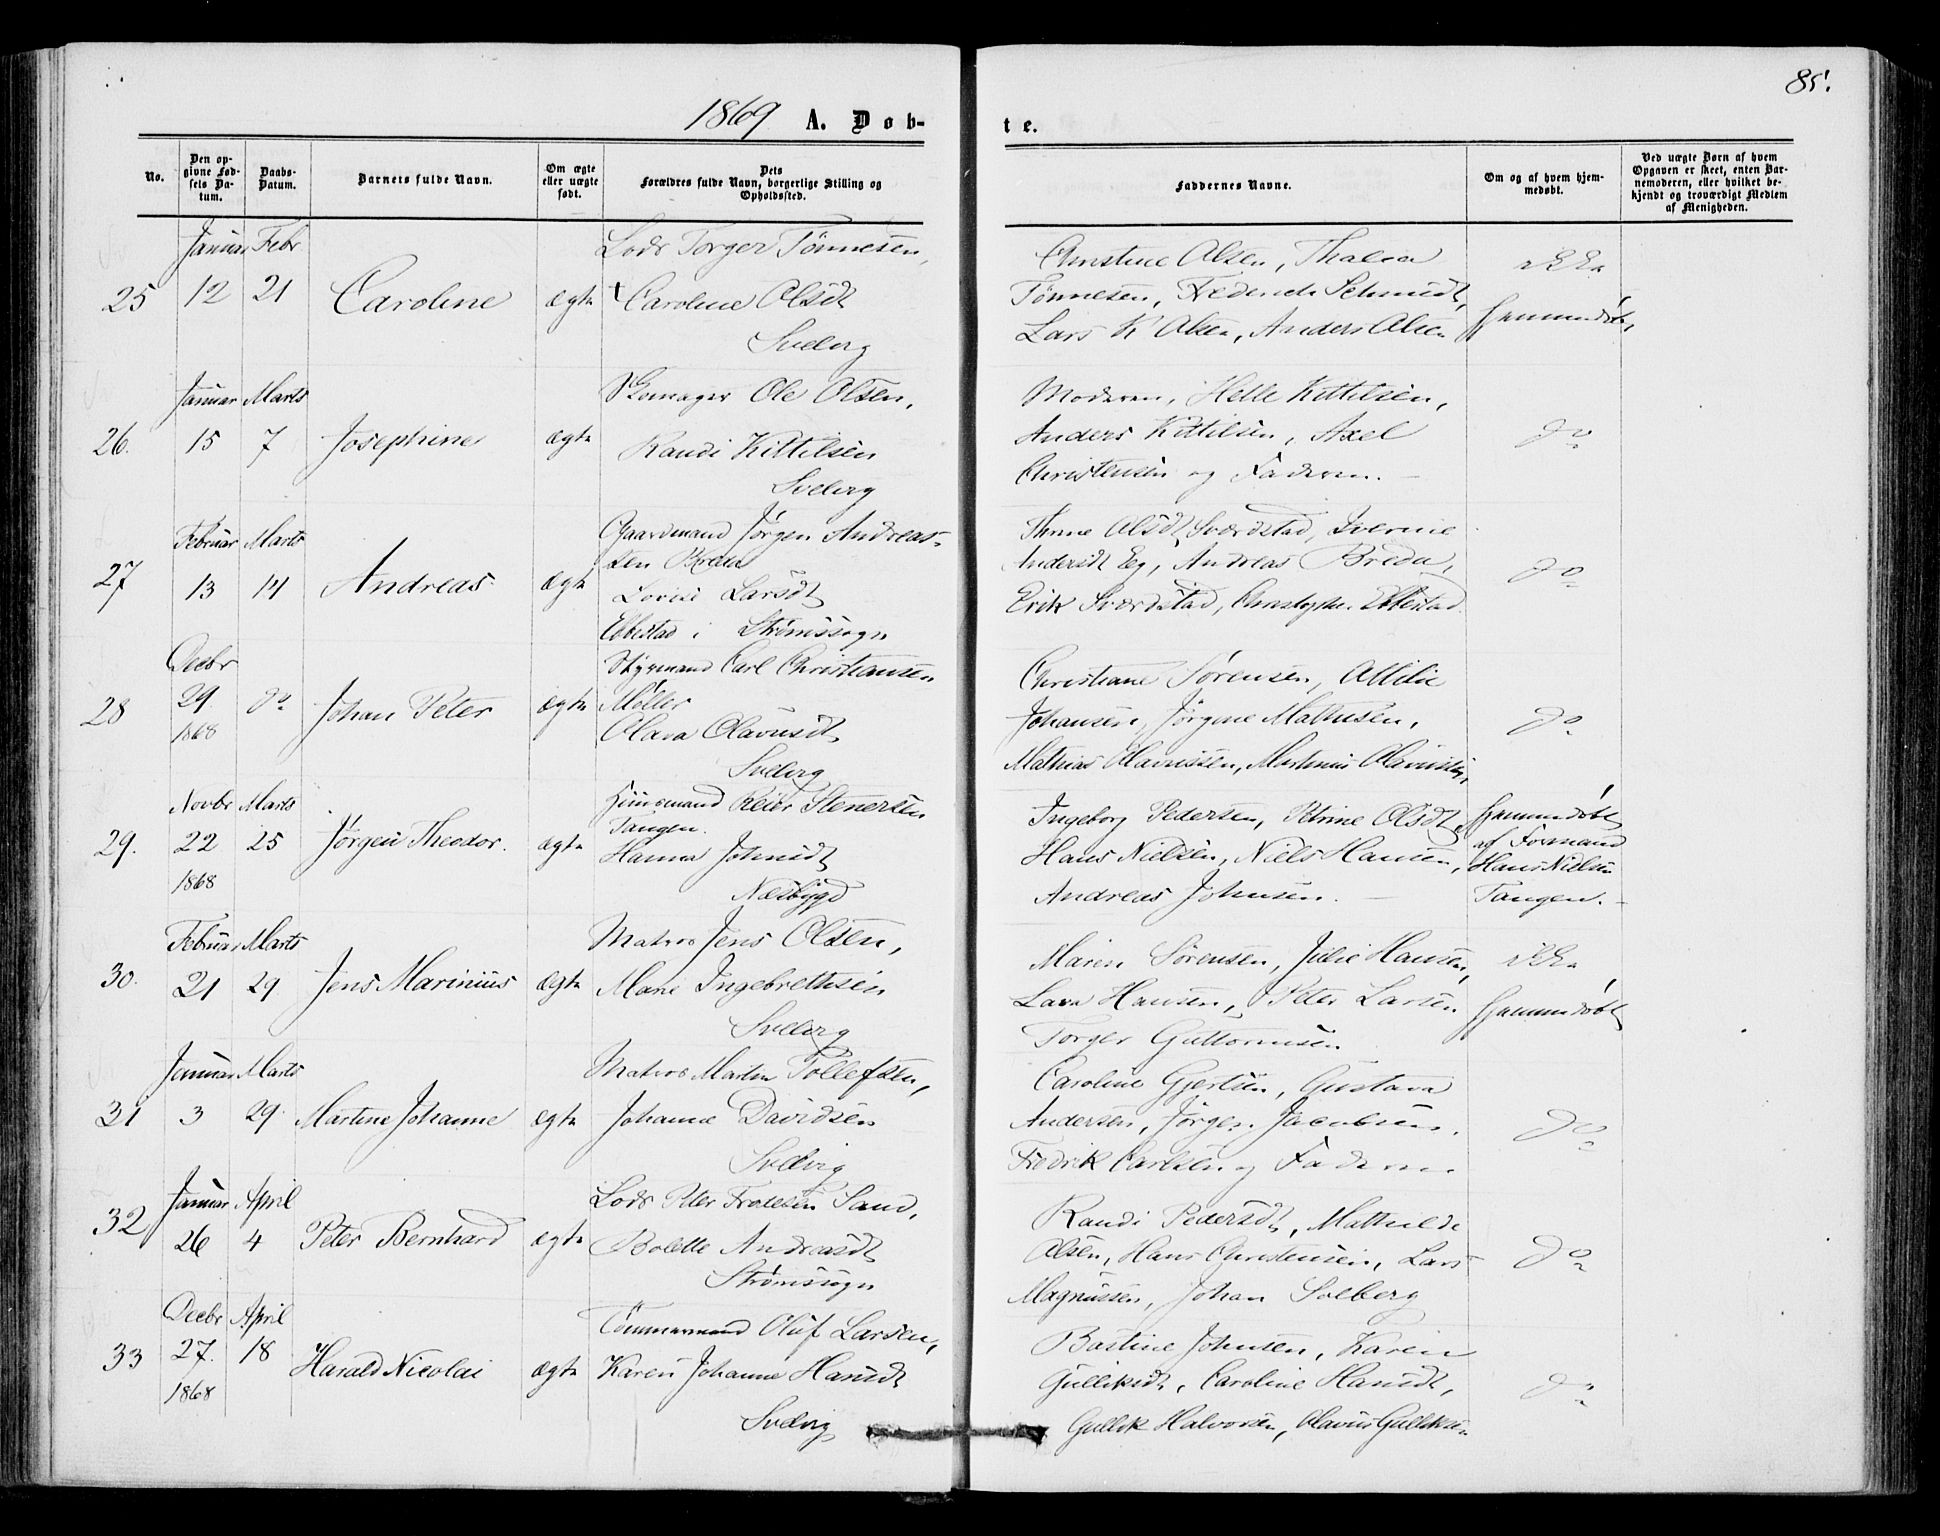 85.
1869 A. Døb-
te.
No.
Den op-
givne Fød-
sels Da-
tum.
Daabs-
Datum.
Barnets fulde Navn.
Om ægte
eller uægte
født.
Dets
Forældres fulde Navn, borgerlige Stilling og
Opholdssted.
Faddernes Navne.
Om og af hvem hjem-
medøbt.
Ved uægte Børn af hvem
Opgaven er skeet, enten Bar-
nemoderen, eller hvilket be-
kjendt og troværdigt Medlem
af Menigheden.
Januar Febr
25 12 21 Caroline ægte
Lods Torger Tønnesen,
Caroline Olsdt
Svelvig
Christine Olsen, Thalea
Tønnesen, Frederich Schmidt,
Lars K Olsen, Anders Olsen
ikke
hjemmedøbt,
Januar Marts
26. 15 7 Josephine ægte
Skomager Ole Olsen,
Randi Kittilsen
Svelvig
Moderen, Helle Kittilsen,
Anders Kittilsen, Axel
Christensen og Faderen. -
do
Februar Marts
27 13 14 Andreas ægte
Gaardmand Jørgen Andreas-
sen Breda
Lovise Larsdt
Ebbestad i Strømssogn
Thrine Olsdt Sværdstad, Iverine
Andersdt Eg, Andreas Breda,
Erik Sværdstad, Ebbestad.
do
Decbr
28 29 do Johan Peter ægte
1868
Styrmand Carl Christiansen
Møller
Olava Olavusdt
Svelvig
Christiane Sørensen, Attilie
Johansen, Jørgine Mathisen,
Mathias Olavussen, Martinius
do
Novbr Marts
29. 22 25 Jørgen Theodor. ægte
1868
Huusmand Reier Stenersen
Tangen.
Hanna Johnsdt
Næsbygd
Ingeborg Pedersen, Petrine Olsdt,
Hans Nielsen, Niels Hansen,
Andreas Johnsen. -
hjemmedøbt
af Formand
Hans Nielsen
Tangen. -
Februar Marts
30. 21 29 Jens Marinius ægte
Matros Jens Olsen,
Mare Ingebrethsen
Svelvig
Maren Sørensen, Julie Hansen,
Lava Hansen, Peter Larsen
Torger Guttormsen
ikke
hjemmedøbt
Januar Marts
31 3 29. Martine Johanne ægte
Matros Martin Tollefsen,
Johanne Davidsen
Svelvig
Caroline Gjertsen, Gustava
Andersen, Jørgen Jacobsen,
Fredrik Carlsen og Faderen.
do
Januar April
32 26 4 Peter Bernhard ægte
Lods Peter Frolesen Sand,
Bolette Andreasdt
Strømssogn
Randi Pedersdt, Mathilde
Olsen, Hans Christensen, Lars
Magnussen, Johan Solberg
do
Decbr April
33 27. 18 Harald Nicolai ægte
1868
Tømmermand Oluf Larsen,
Karen Johanne Hansdt
Svelvig
Bastine Johnsen, Karen
Gulliksdt, Caroline Hansdt,
Gullik Halvorsen, Olavus Gulliksen
do